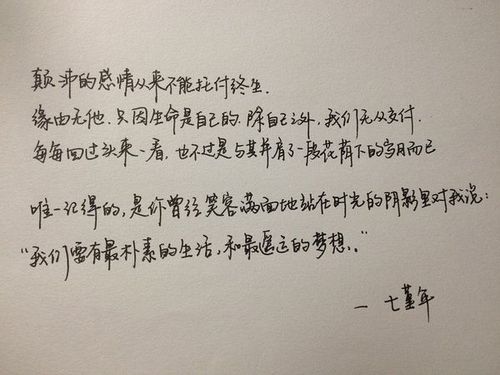 颠沛的感情从来不能托付终生.
缘由无他.只因生命是自己的.除自己之外,我们无从交付.
每每回过头来一看,也不过是与其并肩了一段花荫下的岁月而已
唯一记得的,是你曾经笑容满面地站在时光的阴影里对我说:
“我们要有最朴素的生活,和最遥远的梦想..”
— 七堇年